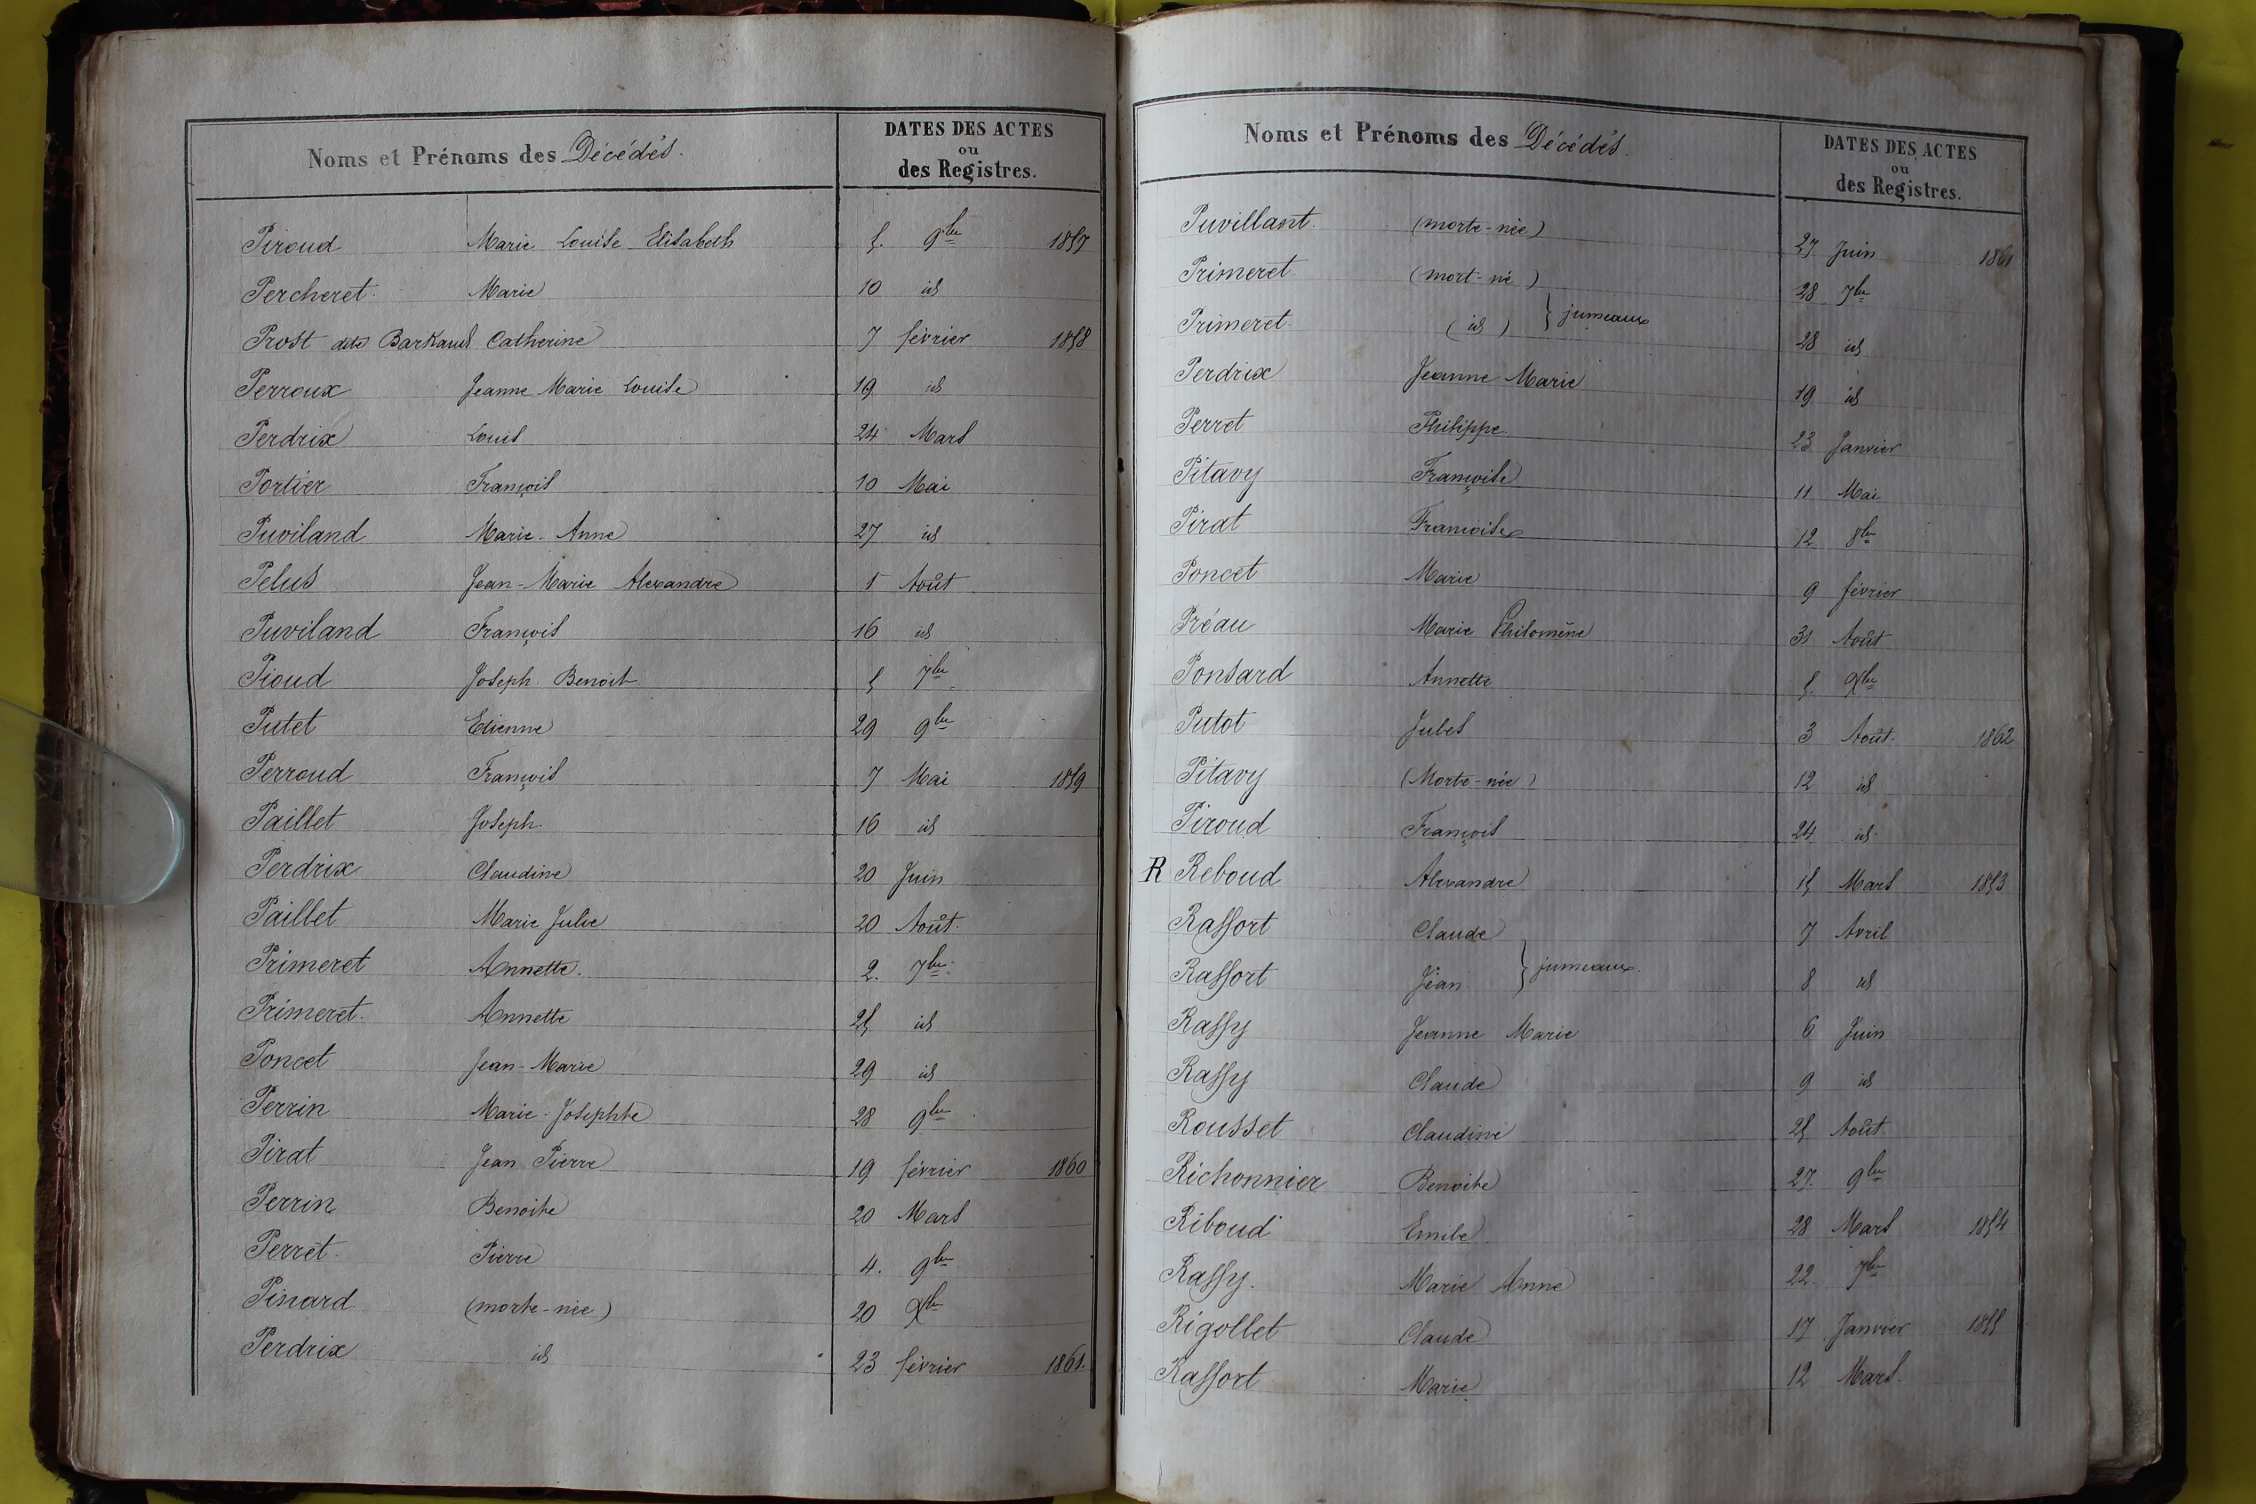 Noms et Prénoms des Décédés.
DATES DES ACTES
ou
des Registres.
Piroud Marie Louise Elisabeth 5. 9bre 1857
Percheret. Marie 10 id
Prost dite Barkaud Catherine 7 février 1858
Perroux Jeanne Marie Louise 19 id
Perdrix Louis 24 Mars
Portier François 10 Mai
Puviland Marie-Anne 27 id
Pelus Jean-Marie Alexandre 1 Août
Puviland François 16 id
Pioud Joseph Benoit 5 7bre
Putet Etienne 29 9bre
Perroud François 7 Mai 1859
Paillet Joseph 16 id
Perdrix Claudine 20 Juin
Paillet Marie Julie 20 Août.
Primeret Annette. 2. 7bre
Primeret. Annette 25 id
Poncet Jean-Marie 29 id
Perrin Marie-Josephte 28 9bre
Pirat Jean Pierre 19 février 1860
Perrin Benoite 20 Mars
Perret Pierre 4. 9bre
Pinard (morte-née) 20 Xbre
Perdrix id 23 février 1861.
Noms et Prénoms des Décédés.
DATES DES ACTES
ou
des Registres.
Puvillant. (morte-née) 27 Juin 1861
Primeret (mort-né) 28 7bre
Primeret (id) } jumeaux 28 id
Perdrix Jeanne Marie 19 id
Perret Philippe 23 Janvier
Pitavy Françoise 11 Mai
Pirat Françoise 12 8bre
Poncet Marie 9 février
Préau Marie Philomène 31 Août
Ponsard Annette 5. Xbre
Putot Jules 3 Août. 1862
Pitavy (Morte-née) 12 id
Piroud François 24 id
R Reboud Alexandre 15 Mars 1853
Raffort Claude 7 Avril
Raffort Jean } jumeaux. 8 id
Raffy Jeanne Marie 6 Juin
Raffy Claude 9 id
Rousset Claudine 25 Août
Richonnier Benoite 27. 9bre
Riboud Emile 28 Mars 1854
Raffy. Marie Anne 22. 7bre
Rigollet Claude 17 Janvier 1855
Raffort Marie 12 Mars.